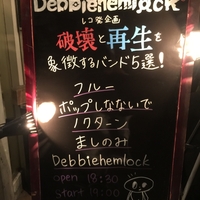 Debbiehemlock
レコ発企画
破壊と再生を
象徴するバンド5選!
フルー
ポップしなないで
ノクターン
ましのみ
Debbiehemlock
open 18:30
Start 19:00